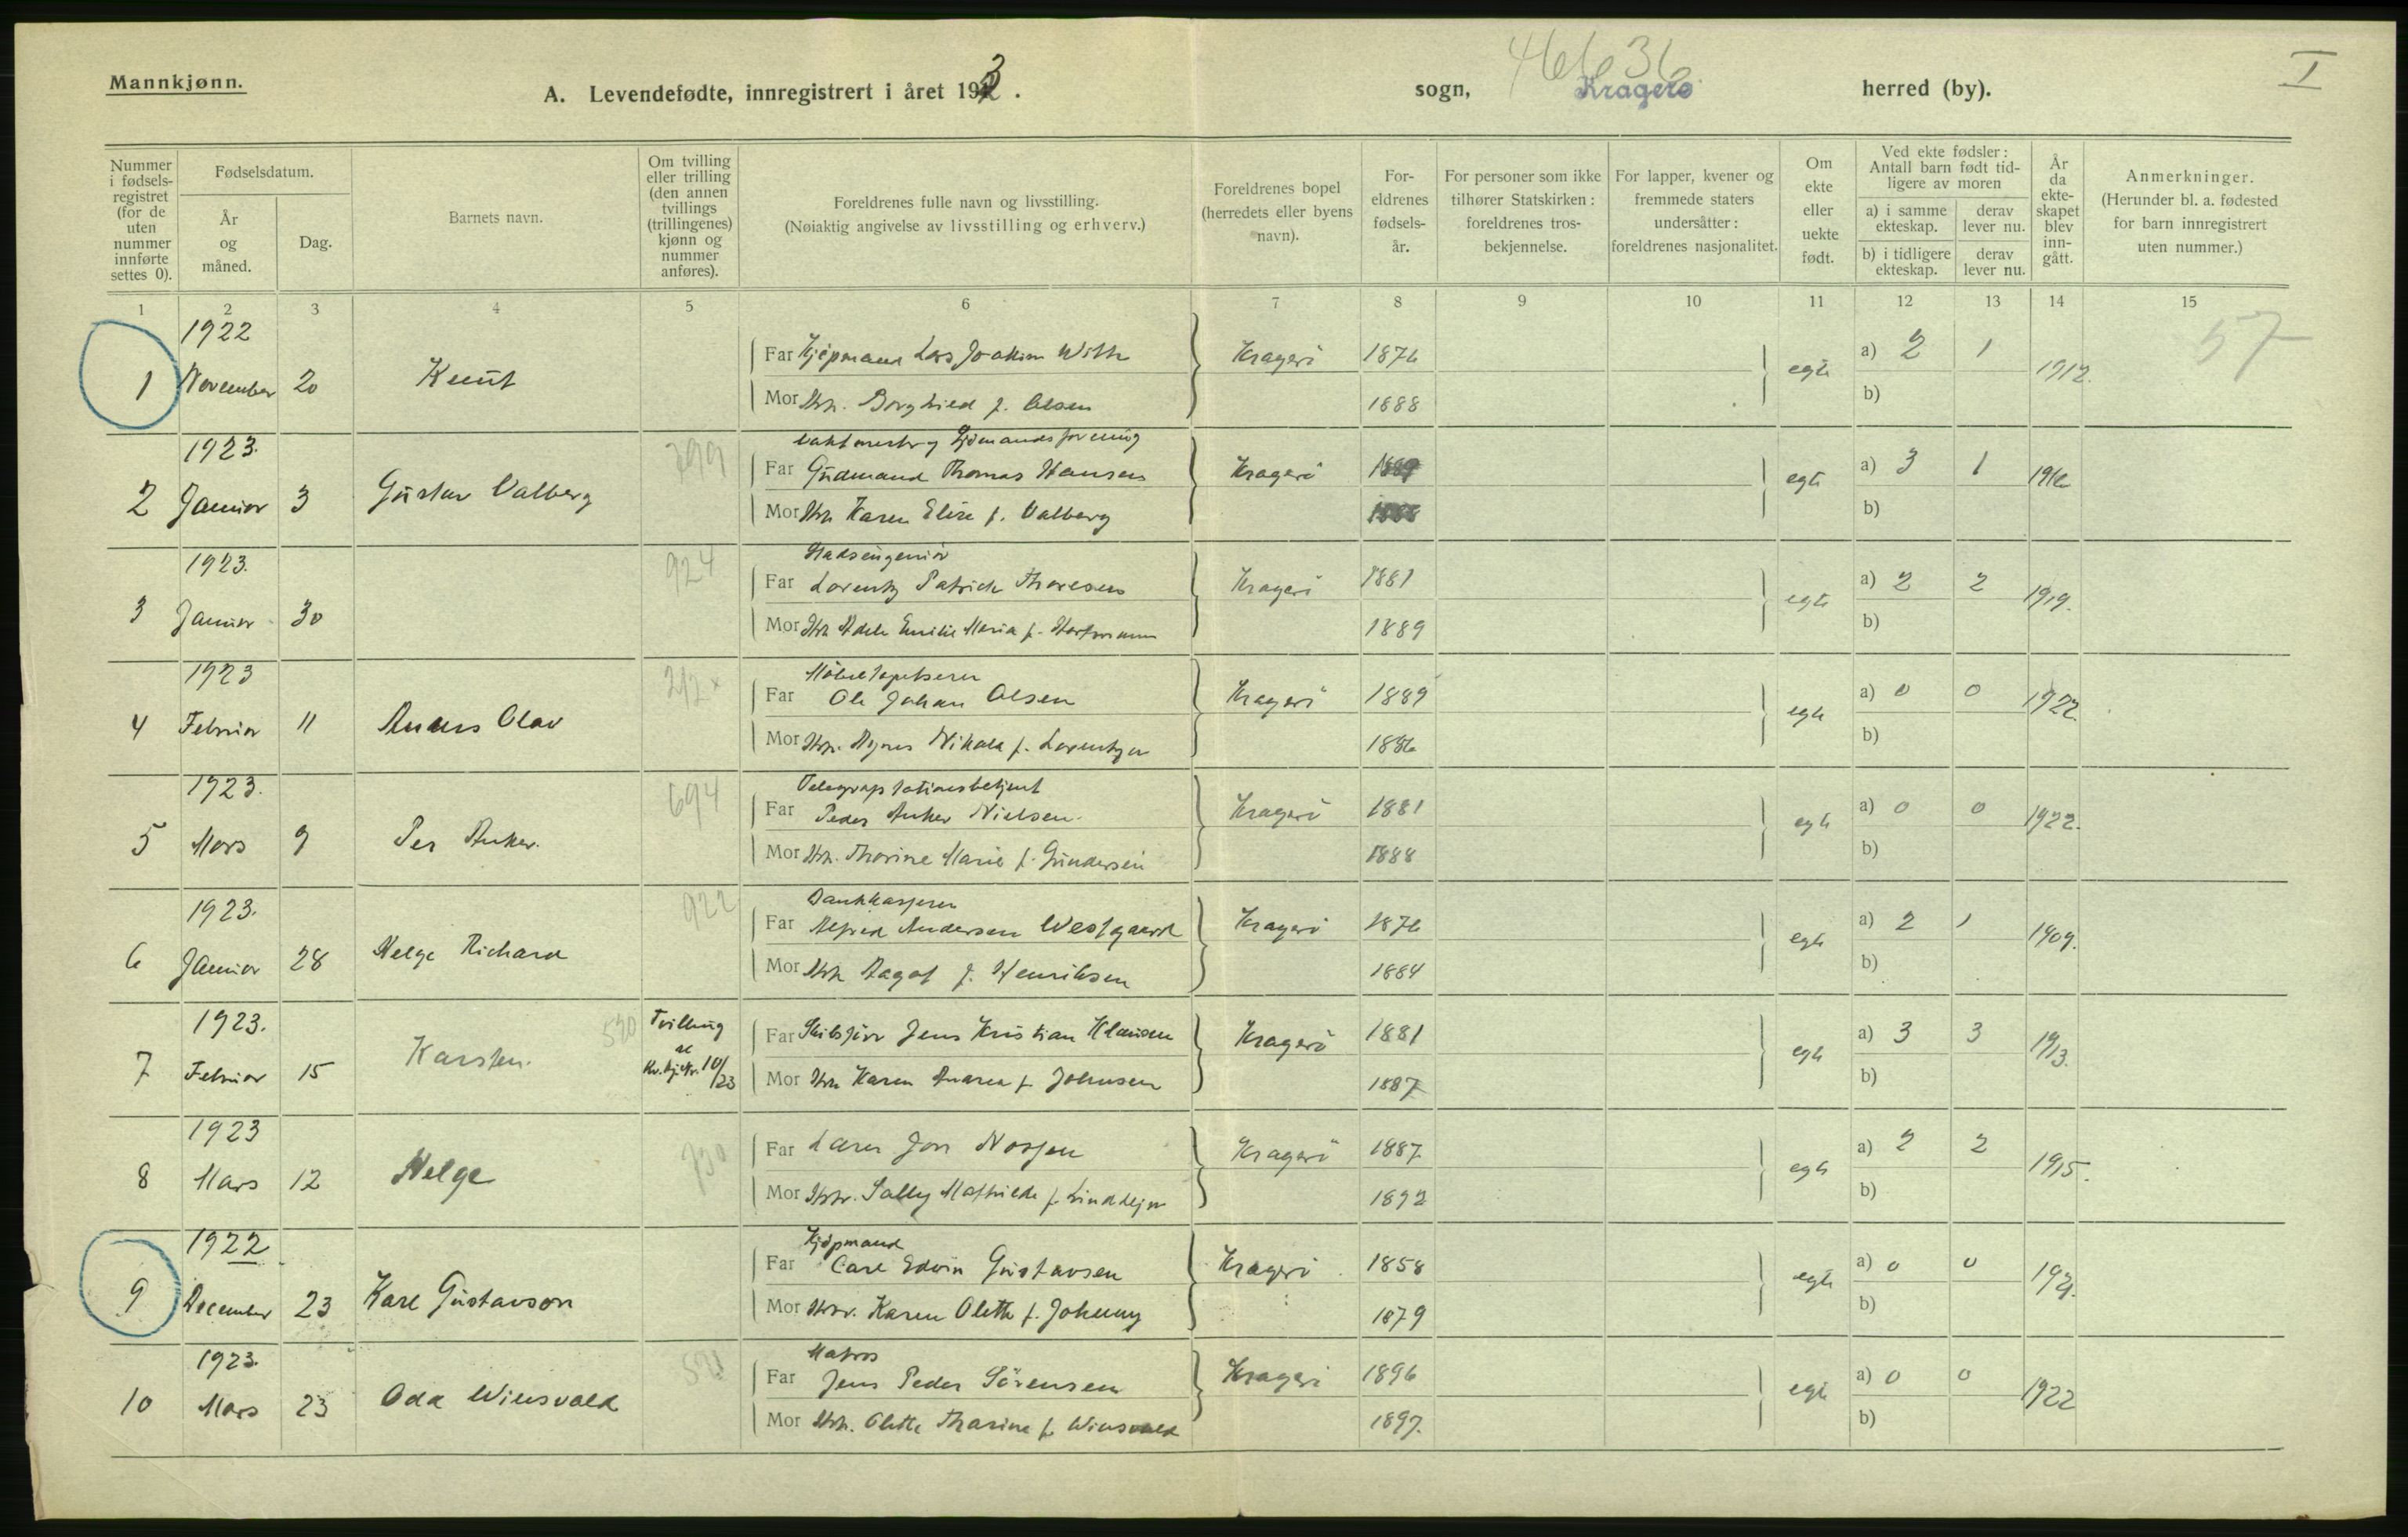 Mannkjønn.
A. Levendefødte, innregistrert i året 1923.
sogn, Kragerø herred (by).
46636
I
Nummer i fødselsregistret (for de uten nummer innførte settes 0).
Fødselsdatum.
År og måned.
Dag.
Barnets navn.
Om tvilling eller trilling (den annen tvillings (trillingenes) kjønn og nummer anføres).
Foreldrenes fulle navn og livsstilling.
(Nøiaktig angivelse av livsstilling og erhverv.)
Foreldrenes bopel (herredets eller byens navn).
Foreldrenes fødselsår.
For personer som ikke tilhører Statskirken: foreldrenes trosbekjennelse.
For lapper, kvener og fremmede staters undersåtter: foreldrenes nasjonalitet.
Om ekte eller uekte født.
Ved ekte fødsler: Antall barn født tidligere av moren
a) i samme ekteskap. derav lever nu.
b) i tidligere ekteskap. derav lever nu.
År da ekteskapet blev inngått.
Anmerkninger.
(Herunder bl. a. fødested for barn innregistrert uten nummer.)
1 2 3 4 5 6 7 8 9 10 11 12 13 14 15
1922
1 November 20 Knut
Far Kjøpmand Lars Joakim With Kragerö 1876 egte a) 2 1 1912. 57
Mor Hr. Borghild f. Olsen 1888 b)
1923.
2 Januar 3 Gustav Valberg 799
Vaktmester Sjömandsforening
Far Gudmand Thomas Hansen Kragerö 1889 egte a) 3 1 1916
Mor Hr. Karen Elise f. Valberg 1888 b)
1923.
3 Januar 30 924
Stadsengeniör
Far Lorentz Patrick Thoresen Kragerö 1881 egte a) 2 2 1919.
Mor Hr. Adele Emilie Maria f. Hartmann 1889 b)
1923
4 Februar 11 Anders Olav 212 x
Möbeltapetserer
Far Ole Johan Olsen Kragerö 1889 egte a) 0 0 1922.
Mor Hr. Agnes Nikola f. Lorentzen 1886 b)
1923.
5 Mars 9 Per Anker. 694
Telegrafstationsbetjent
Far Peder Anker Nielsen. Kragerö 1881 egte a) 0 0 1922.
Mor Hr. Thorine Marie f. Gundersen 1888 b)
1923.
6 Januar 28 Helge Richard 922
Bankkasserer
Far Alfred Andersen Westgaard Kragerö 1876 egte a) 2 1 1909.
Mor Hr. Dagot f. Henriksen 1884 b)
1923.
7 Februar 15 Karsten. 530 Tvilling al Kv.kj. Nr. 10/23
Far Skibsfører Jens Kristian Klausen Kragerö 1881 egte a) 3 3 1913.
Mor Hr. Karen Anarea f. Johnsen 1887 b)
1923
8 Mars 12 Helge 730
Far Lærer Jon Nossen Kragerö 1887. egte a) 2 2 1915.
Mor Hr. Sally Mathilde f. 1892 b)
1922
9 December 23 Karl Gustavson
Kjöpmand
Far Carl Edvin Gustavsen Kragerö 1858 egte a) 0 0 1921.
Mor Hr. Karen Olette f. Johnny 1879 b)
1923.
10 Mars 23 Odd Winsvold
Matros
Far Jens Peder Sörensen Kragerö 1896 egte a) 0 0 1922
Mor Hr. Olette Tharine f. Winsvold 1897. b)